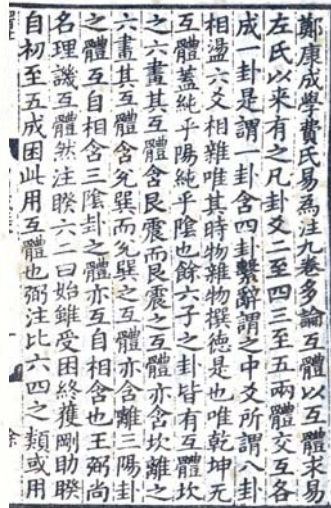 鄭康成學費氏易為注九卷多論互體以互體求易
左氏以来有之凡卦爻二至四三至五兩體交互各
成一卦是謂一卦含四卦繫辭謂之中爻所謂八卦
相盪六爻相雜唯其時物雜物撰徳是也唯乾坤无
互體蓋純乎陽純乎陰也餘六子之卦皆有互體坎
之六畫其互體含艮震而艮震之互體亦含坎離之
六畫其互體含兊巽而兊巽之互體亦含離三陽卦
之體互自相含三陰卦之體亦互自相含也王弼尚
名理譏互體然注睽六二曰始雖受困終獲剛助睽
自初至五成困此用互體也弼注比六四之類或用